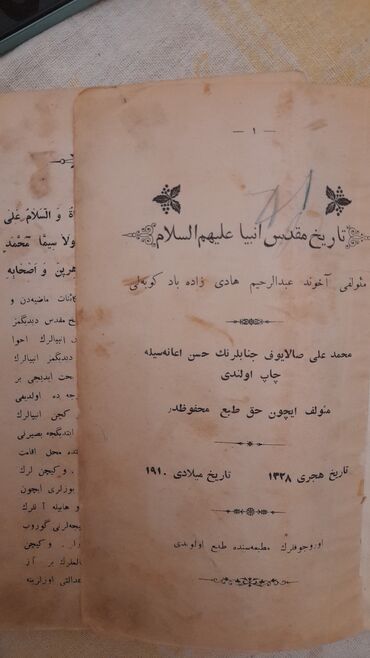 — ١ —
تاریخ مقدس انبیا علیهم السلام
مئولفی آخوند عبدالرحیم هادی زاده باد کوبه‌لی
محمد علی صالایوف جنابلرنك حسن اعانه‌سیله
چاپ اولندی
مئولف ایچون حق طبع محفوظدر
تاریخ هجری ١٣٢٨ تاریخ میلادی ١٩١٠
اوروجوفلرڭ مطبعه‌سنده طبع اولوندی
ةُ وَ السَّلامُ عَلی
ولاَ سِیَّما مُحَمَّدٍ
هِرینَ وَ اَصْحابِهِ
ئنات ماضیه‌دن و
خ مقدس دیدیگمز
انبیالرك احوا
دیدیگمز انبیالرك
حت ایدیجی بر
جه ده اولدیغی
کیچن انبیالرك
ایتدیگجه بصیرتی
نده محل اقامت
و کیچن لرك
یوزلری ایچون
و هابیله آنلرك
یجه‌لرینی گوروب
و کیچن
المملرك بر آز
عدالتی اوزلرینه